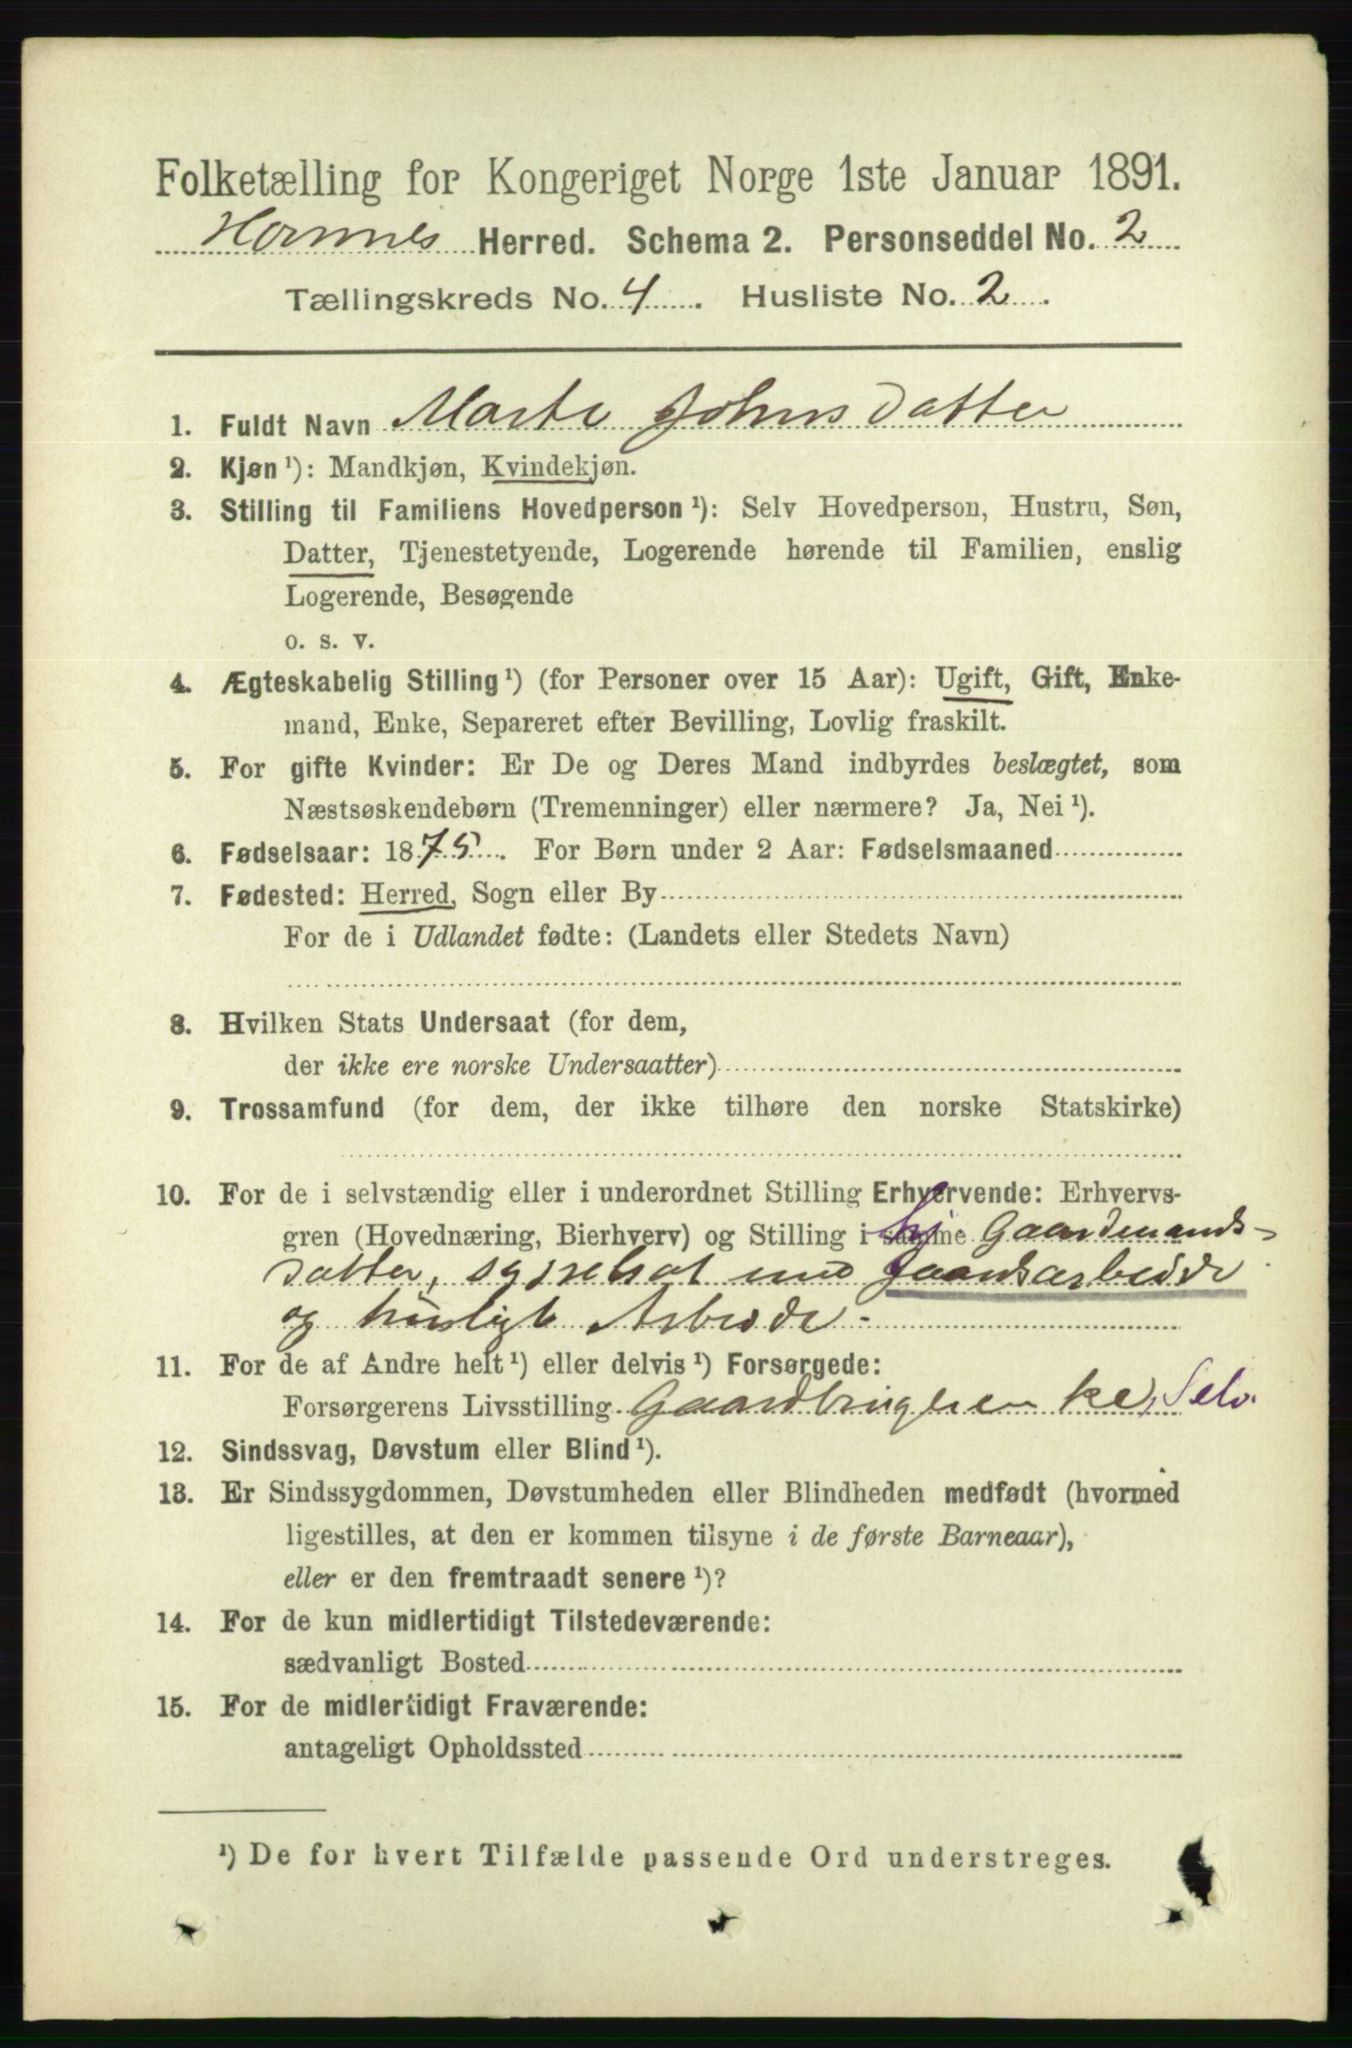 Folketælling for Kongeriget Norge 1ste Januar 1891.
Hornnes Herred. Schema 2. Personseddel No. 2
Tællingskreds No. 4. Husliste No. 2.
1. Fuldt Navn Marte Johnsdatter
2. Kjøn ¹): Mandkjøn, Kvindekjøn.
3. Stilling til Familiens Hovedperson ¹): Selv Hovedperson, Hustru, Søn,
Datter, Tjenestetyende, Logerende hørende til Familien, enslig
Logerende, Besøgende
o. s. v.
4. Ægteskabelig Stilling ¹) (for Personer over 15 Aar): Ugift, Gift, Enke-
mand, Enke, Separeret efter Bevilling, Lovlig fraskilt.
5. For gifte Kvinder: Er De og Deres Mand indbyrdes beslægtet, som
Næstsøskendebørn (Tremenninger) eller nærmere? Ja, Nei ¹).
6. Fødselsaar: 1875. For Børn under 2 Aar: Fødselsmaaned
7. Fødested: Herred, Sogn eller By
For de i Udlandet fødte: (Landets eller Stedets Navn)
8. Hvilken Stats Undersaat (for dem,
der ikke ere norske Undersaatter)
9. Trossamfund (for dem, der ikke tilhøre den norske Statskirke)
10. For de i selvstændig eller i underordnet Stilling Erhvervende: Erhvervs-
gren (Hovednæring, Bierhverv) og Stilling i samme hj Gaardmands-
datter, sysselsat med Gaardsarbeide
og husligt Arbeide.
11. For de af Andre helt ¹) eller delvis ¹) Forsørgede:
Forsørgerens Livsstilling Gaardbruger ke, Selv.
12. Sindssvag, Døvstum eller Blind ¹).
13. Er Sindssygdommen, Døvstumheden eller Blindheden medfødt (hvormed
ligestilles, at den er kommen tilsyne i de første Barneaar),
eller er den fremtraadt senere ¹)?
14. For de kun midlertidigt Tilstedeværende:
sædvanligt Bosted
15. For de midlertidigt Fraværende:
antageligt Opholdssted
¹) De for hvert Tilfælde passende Ord understreges.